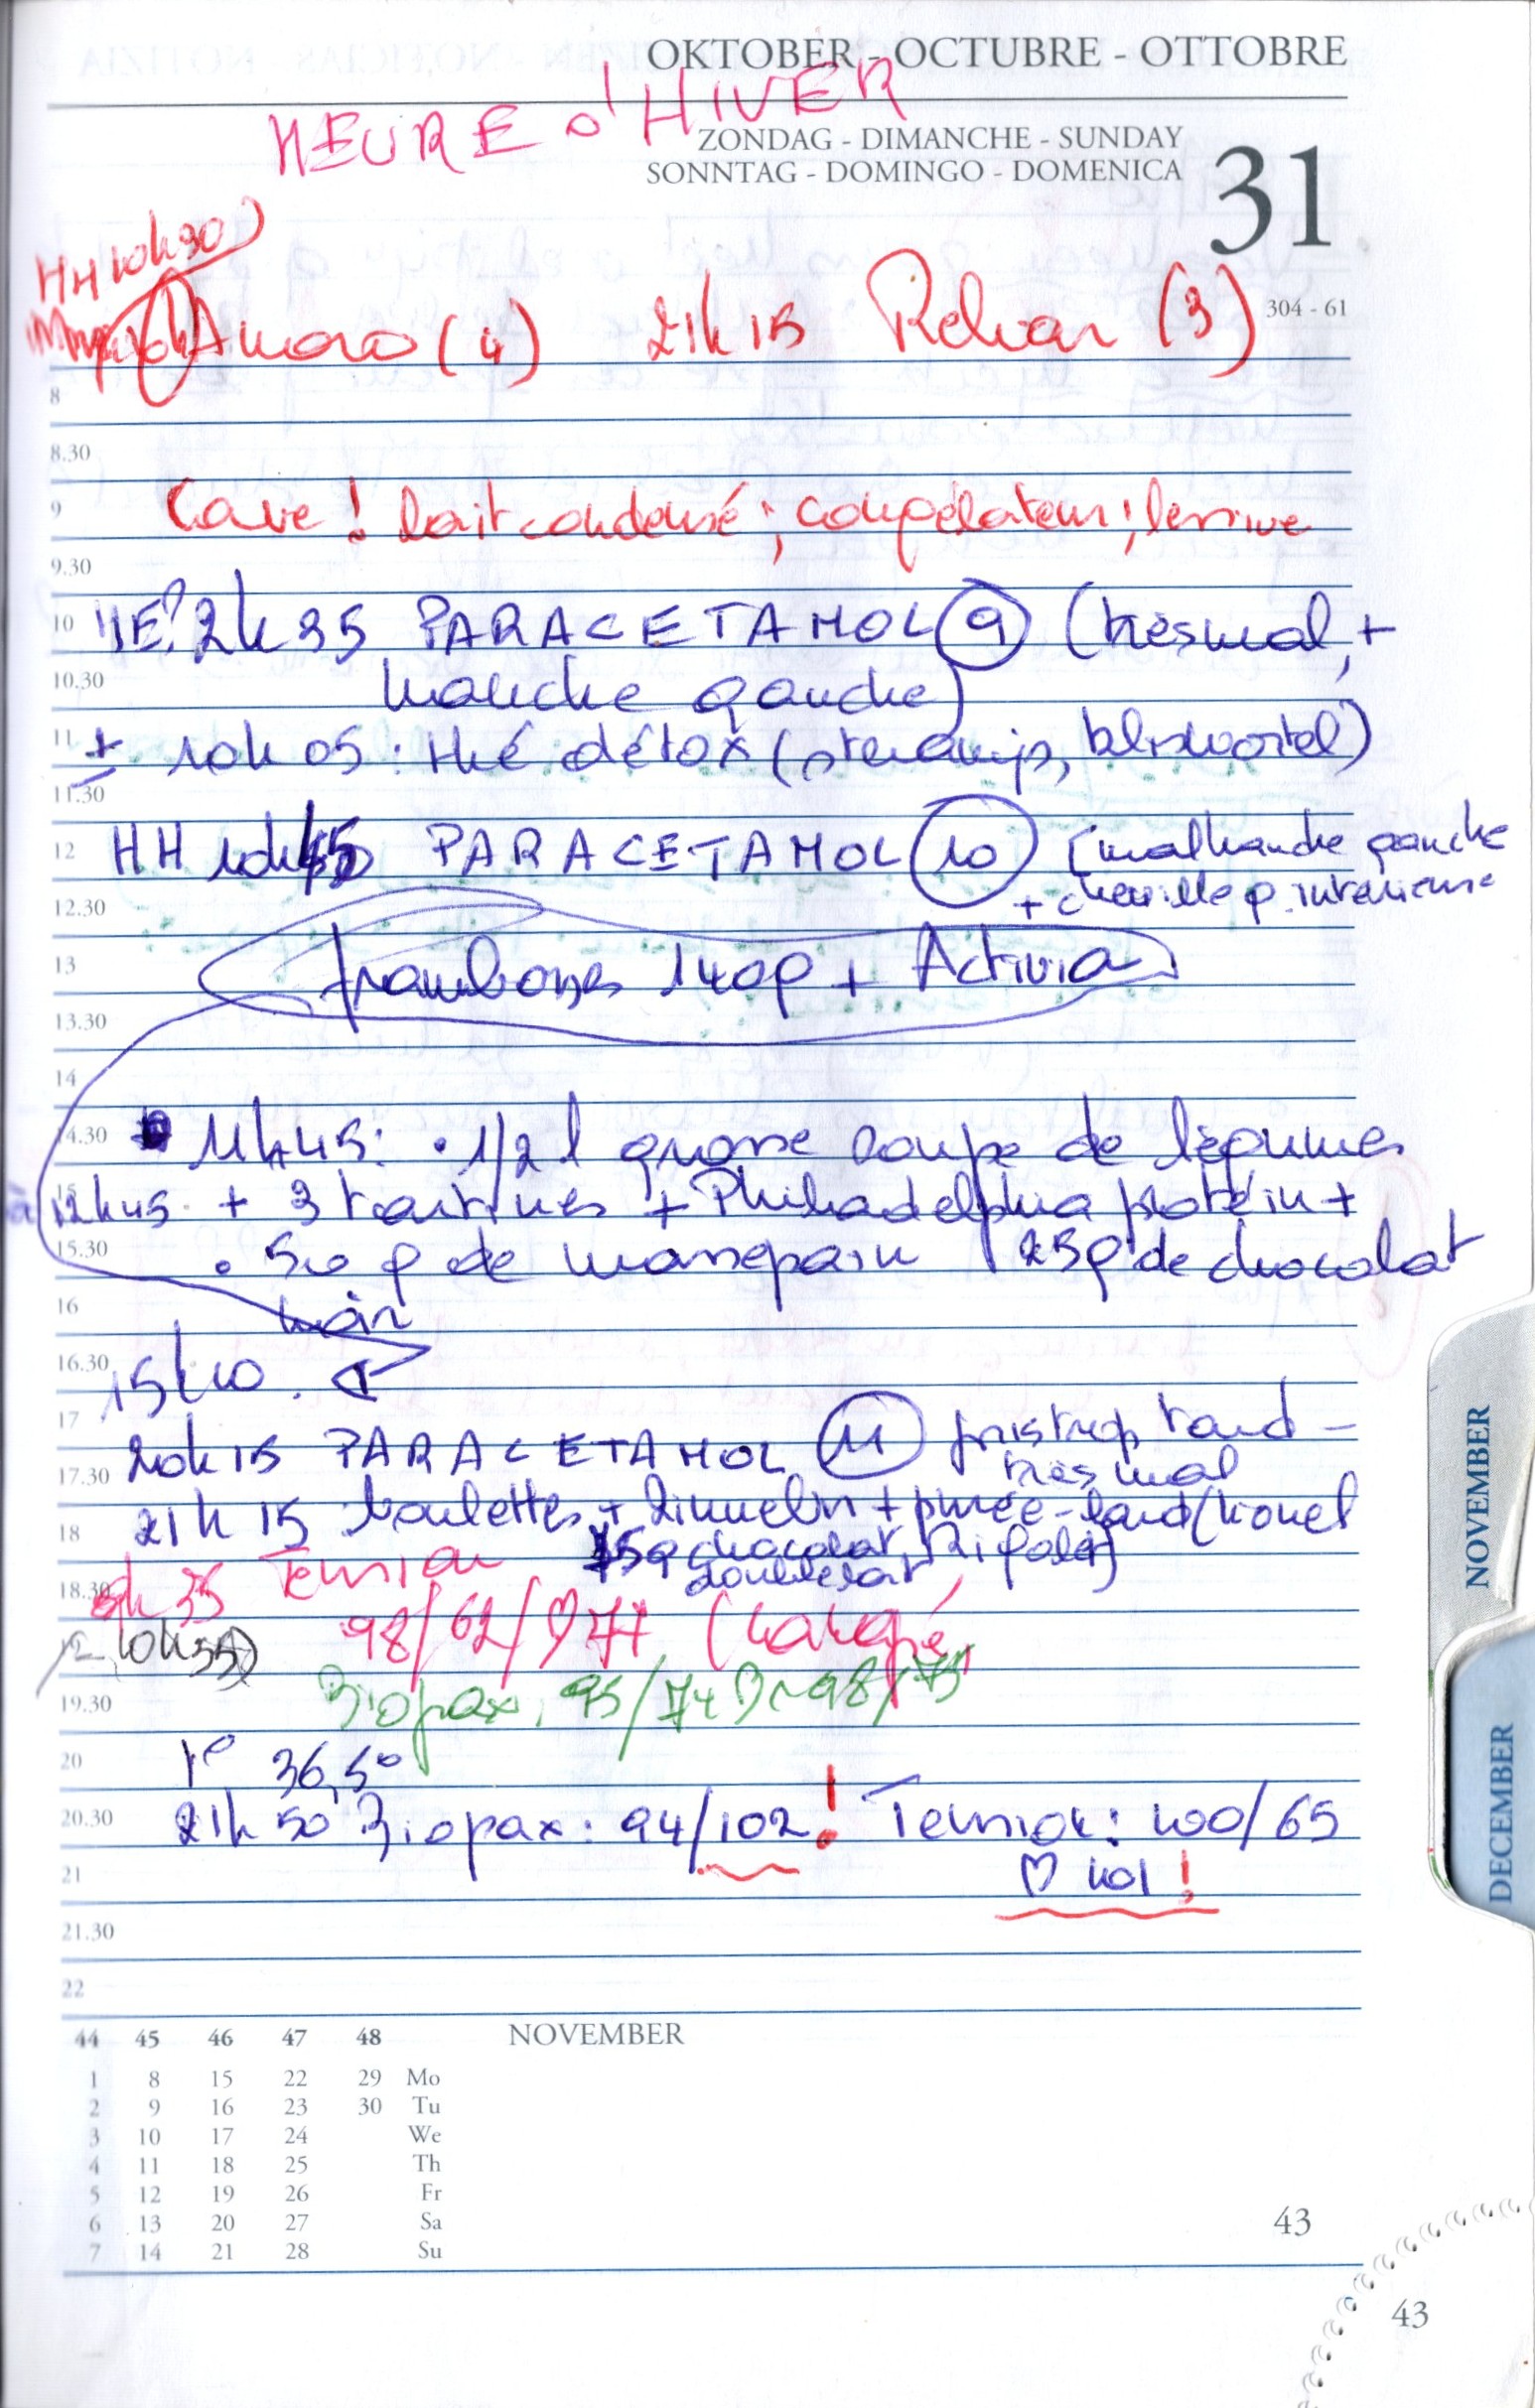 OKTOBER - OCTUBRE - OTTOBRE
HEURE d'HIVER
ZONDAG - DIMANCHE - SUNDAY
SONNTAG - DOMINGO - DOMENICA
31
304 - 61
HH 10h30
(4) 21h15 (3)
8
8.30
9 Cave ! lait condensé ; congélateur ; lessive
9.30
10 HE? 2h35 PARACETAMOL 9 (très mal, +
10.30 hanche gauche)
11 ± 10h05 : thé détox (
11.30
12 HH 10h45 PARACETAMOL 10 (mal hanche gauche
12.30 + cheville g. intérieure
13 framboises 140g + Activia
13.30
14
14.30 11h45: • 1/2 l grosse soupe de légumes
15 à 12h45 + 3 tartines + Philadelphia protéin +
15.30 • 50 g de massepain 25g de chocolat
16 noir
16.30 15h10.
17 20h15 PARACETAMOL 11 pris trop tard -
17.30 très mal
18 21h15 boulettes + + purée - lard (
chocolat
18.30 35 Tension
98/62/♡77 (
10h35)
19.30 95/74
20 T° 36,5°
20.30 21h50 : 94/102 ! Tension : 100/65
21 ♡ 101 !
21.30
22
44 45 46 47 48 NOVEMBER
1 8 15 22 29 Mo
2 9 16 23 30 Tu
3 10 17 24 We
4 11 18 25 Th
5 12 19 26 Fr
6 13 20 27 Sa
7 14 21 28 Su
43
43
NOVEMBER
DECEMBER